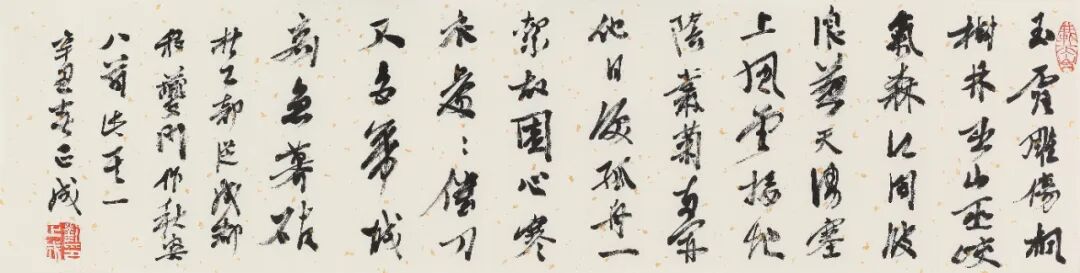 玉露雕傷楓
樹林巫山巫峽
氣森江間波
浪兼天湧塞
上風雲接地
陰叢菊兩開
他日淚孤舟一
繫故園心寒
衣處々催刀
尺白帝城
高急暮砧
杜工部從成都
移夔門作秋興
八首此其一
辛丑春正成